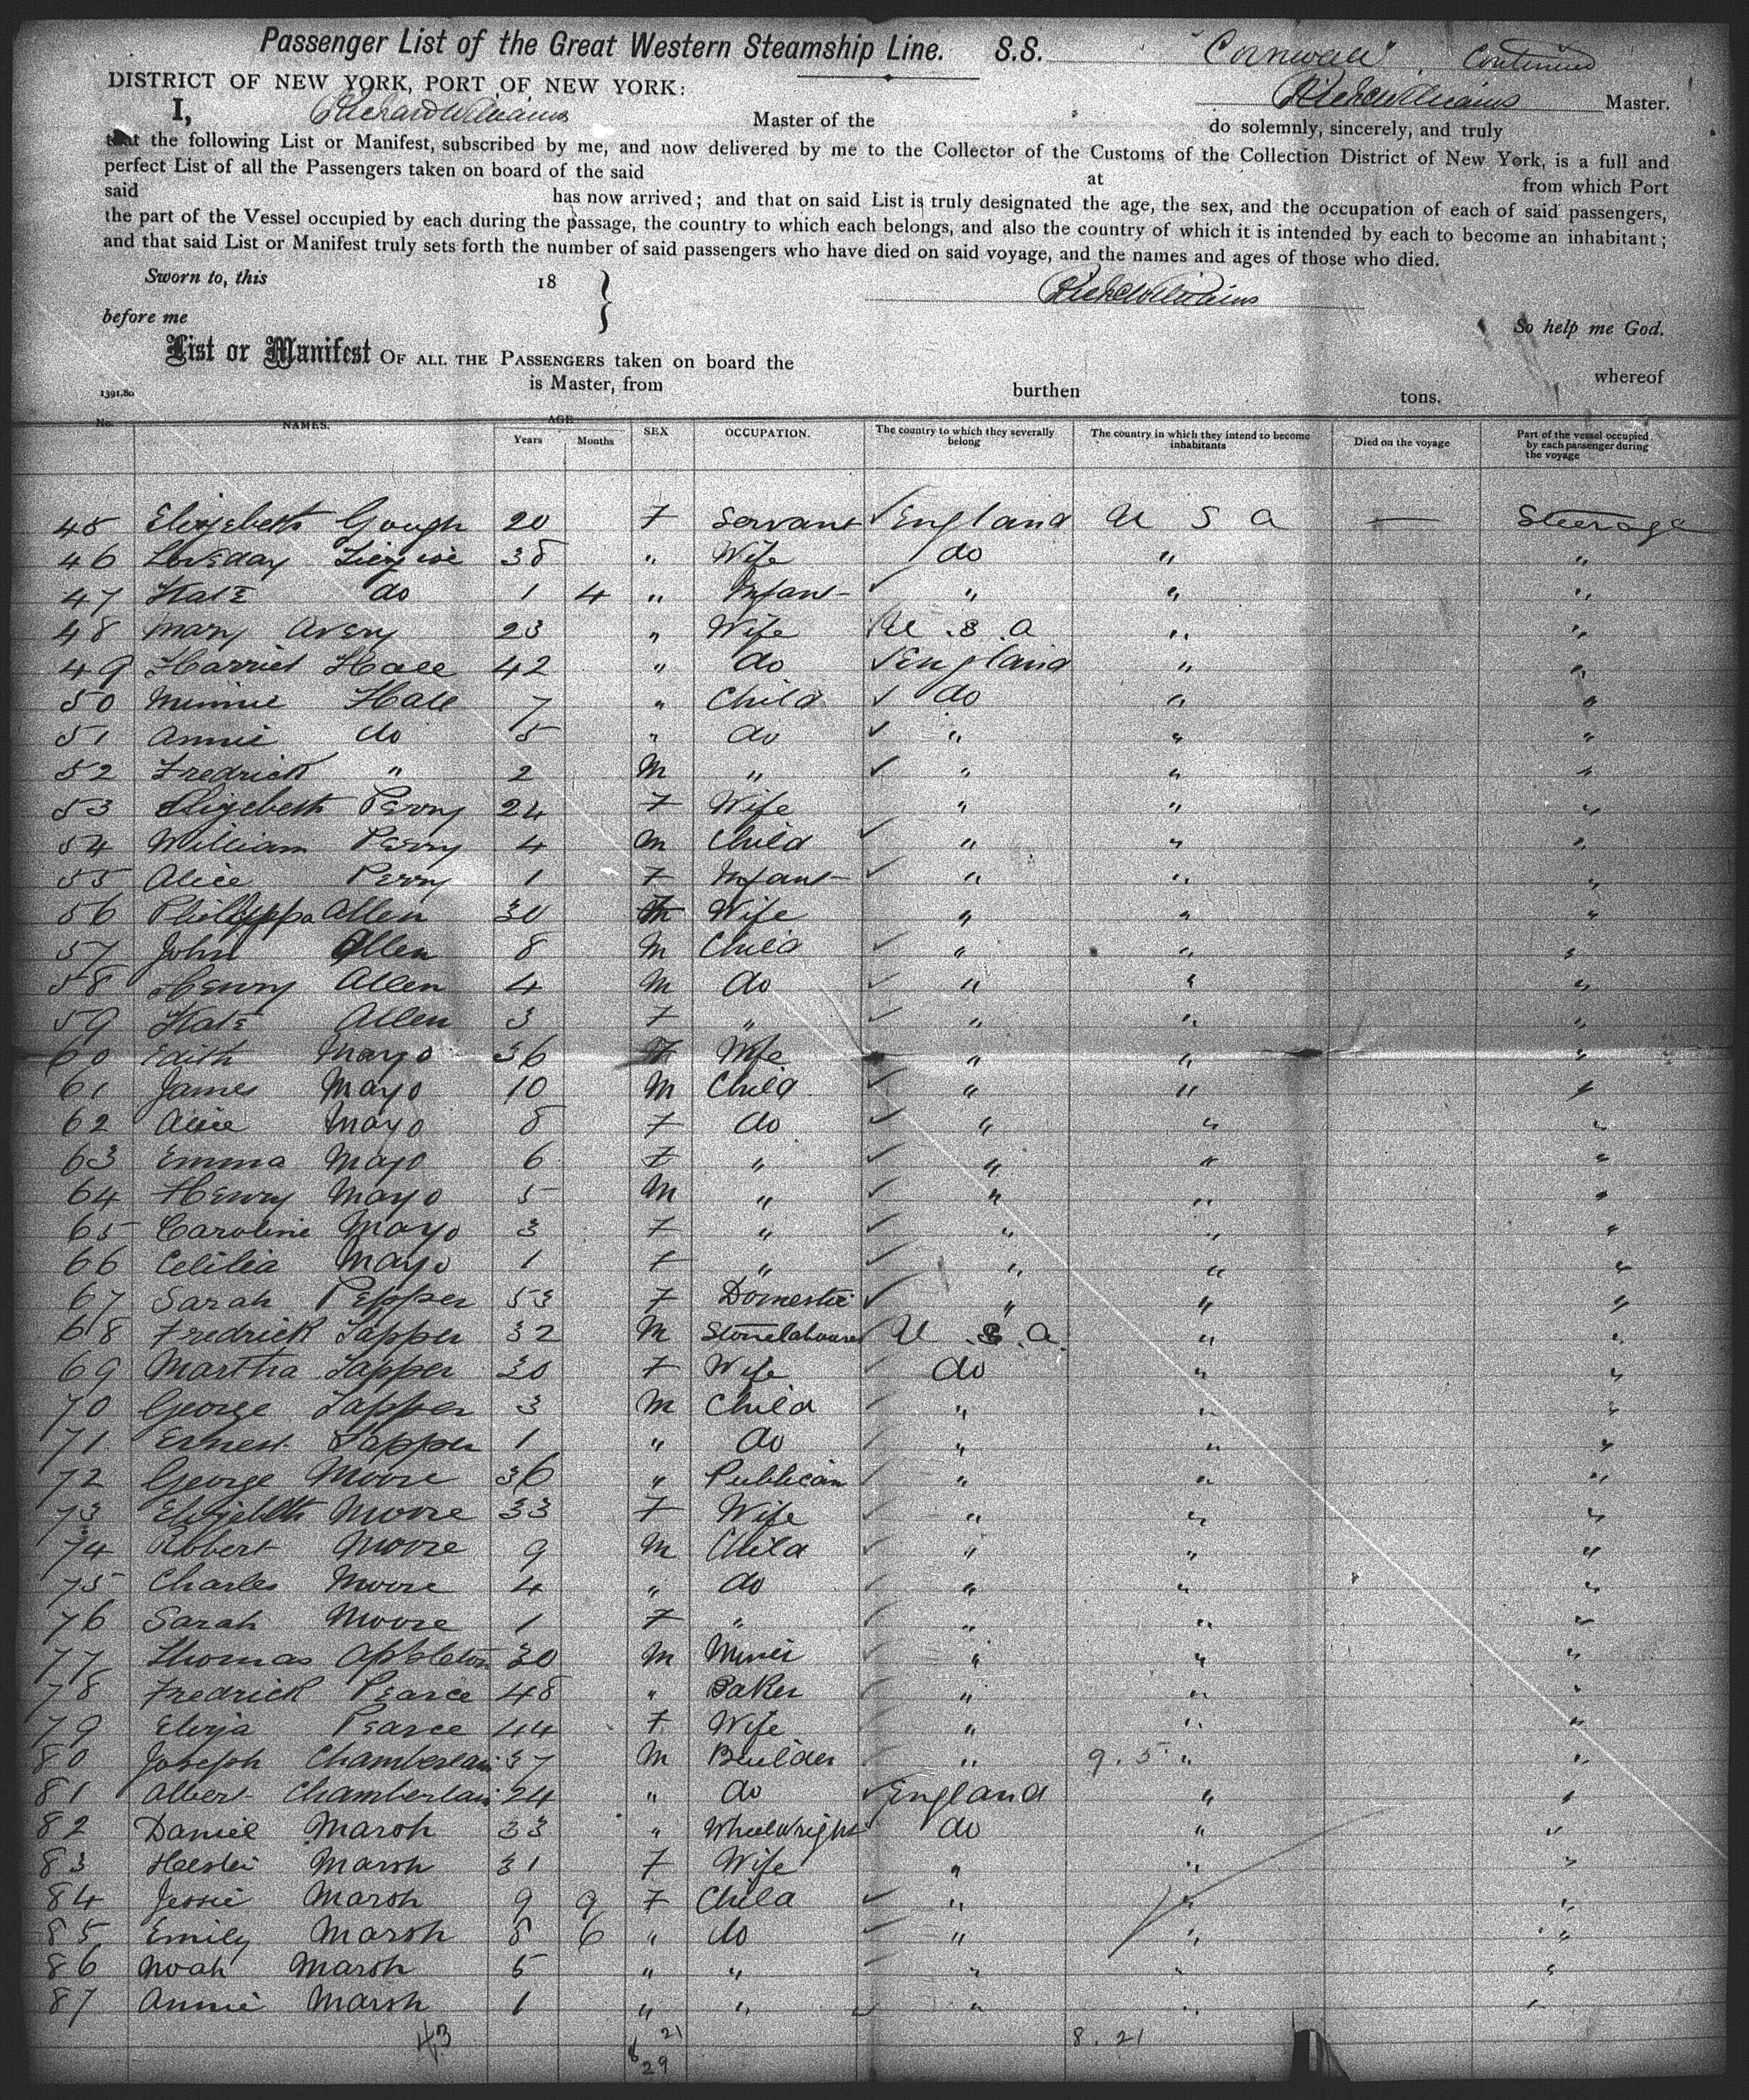 Passenger List of the Great Western Steamship Line. S.S. "Cornwall" Continued
DISTRICT OF NEW YORK, PORT OF NEW YORK: Richd Williams Master.
I, Richard Williams Master of the do solemnly, sincerely, and truly
that the following List or Manifest, subscribed by me, and now delivered by me to the Collector of the Customs of the Collection District of New York, is a full and
perfect List of all the Passengers taken on board of the said at from which Port
said has now arrived; and that on said List is truly designated the age, the sex, and the occupation of each of said passengers,
the part of the Vessel occupied by each during the passage, the country to which each belongs, and also the country of which it is intended by each to become an inhabitant;
and that said List or Manifest truly sets forth the number of said passengers who have died on said voyage, and the names and ages of those who died.
Sworn to, this 18 } Richd Williams
before me So help me God.
List or Manifest OF ALL THE PASSENGERS taken on board the whereof
1391.80 is Master, from burthen tons.
No. NAMES. AGE Years Months SEX OCCUPATION. The country to which they severally belong The country in which they intend to become inhabitants Died on the voyage Part of the vessel occupied by each passenger during the voyage
45 Elizebeth Gough 20 F Servant England U S A — Steerage
46 Loveday 38 " Wife do " "
47 Kate do 1 4 " Infant " " "
48 Mary Avery 23 " Wife U.S.A " "
49 Harriet Hale 42 " do England " "
50 Minnie Hale 7 " Child do " "
51 Annie do 5 " do " " "
52 Fredrick " 2 M " " " "
53 Elizebeth Perry 24 F Wife " " "
54 William Perry 4 M Child " " "
55 Alice Perry 1 F Infant " " "
56 Philippa Allen 30 Wife " " "
57 John Allen 8 M Child " " "
58 Henry Allen 4 M do " " "
59 Kate Allen 3 F " " " "
60 Edith Mayo 36 F Wife " " "
61 James Mayo 10 M Child " " "
62 Alice Mayo 8 F do " " "
63 Emma Mayo 6 F " " " "
64 Henry Mayo 5 M " " " "
65 Caroline Mayo 3 F " " " "
66 Celilia Mayo 1 F " " " "
67 Sarah Pepper 53 F Domestic " " "
68 Fredrick Tapper 32 M Stonelabourer U.S.A. " "
69 Martha Tapper 30 F Wife do " "
70 George Tapper 3 M Child " " "
71 Ernest Tapper 1 " do " " "
72 George Moore 36 " Publican " " "
73 Elizabeth Moore 33 F Wife " " "
74 Robert Moore 9 M Child " " "
75 Charles Moore 4 " do " " "
76 Sarah Moore 1 F " " " "
77 Thomas Appleton 30 M Miner " " "
78 Fredrick Pearce 48 " Baker " " "
79 Eliza Pearce 44 F Wife " " "
80 Joseph Chamberlain 37 M Builder " 9.5 " "
81 Albert Chamberlain 24 " do England " "
82 Daniel Marsh 33 " Wheelwright do " "
83 Marsh 31 F Wife " " "
84 Jessie Marsh 9 9 F Child " " "
85 Emily Marsh 8 6 " do " " "
86 Noah Marsh 5 " " " " "
87 Annie Marsh 1 " " " " "
43 21 8.21
8 29